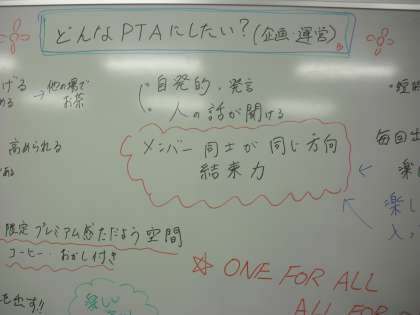 どんなPTAにしたい?(企画・運営)
げる
→他の場で
お茶
・自発的、発言
・人の話が聞ける
高められる
メンバー同士が同じ方向
結束力
毎回出
楽し
限定プレミアム感ただよう空間
コーヒー・おかし付き
☆ONE FOR ALL
を出す!!
楽しい
ALL FOR